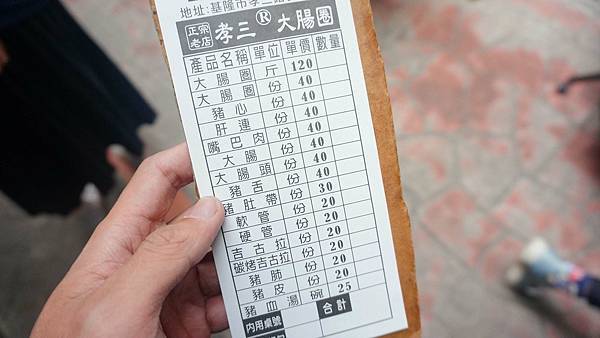 地址:基隆市孝三
正宗老店 孝三® 大腸圈
產品名稱 單位 單價 數量
大腸圈 斤 120
大腸圈 份 40
豬心 份 40
肝連 份 40
嘴巴肉 份 40
大腸 份 40
大腸頭 份 40
豬舌 份 40
豬肚帶 份 30
軟管 份 20
硬管 份 20
吉古拉 份 20
碳烤吉古拉 份 20
豬肺 份 20
豬皮 份 20
豬血湯 碗 25
內用桌號 合計